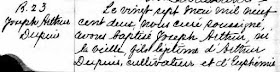 B. 23
Joseph Arthur
Dupuis
Le vingt sept Mai mil neuf
cent deux, nous curé soussigné,
avons baptisé Joseph Arthur, né
la veille, fils légitime d'Arthur
Dupuis, cultivateur et d'Euphémie